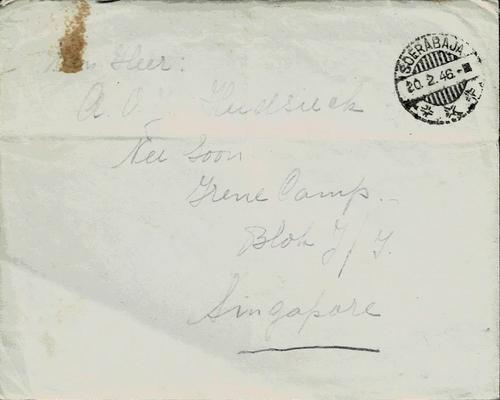 Heer:
A. O.
Nee Soon
Irene Camp.
Blok J/J.
Singapore
SOERABAJA
20.2.46.-